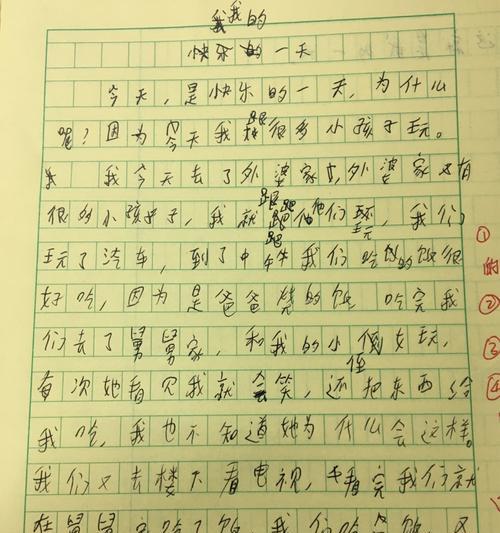 我我的
快乐的一天
今天，是快乐的一天，为什么
呢？因为今天我跟很多小孩子玩。
我今天去了外婆家，外婆家又有
很多小孩子，我就跟他们玩，我们
玩了汽车，到了中午我们吃饭的饭很
好吃，因为是爸爸烧的饭 吃完我
们去了舅舅家，和我的小侄女玩，
每次她看见我就会笑，还把东西给
我吃，我也不知道她为什么会这样。
我们又去楼下看电视，看完我们就
在舅舅家吃了饭，我们吃饭，又
①
②
③
④